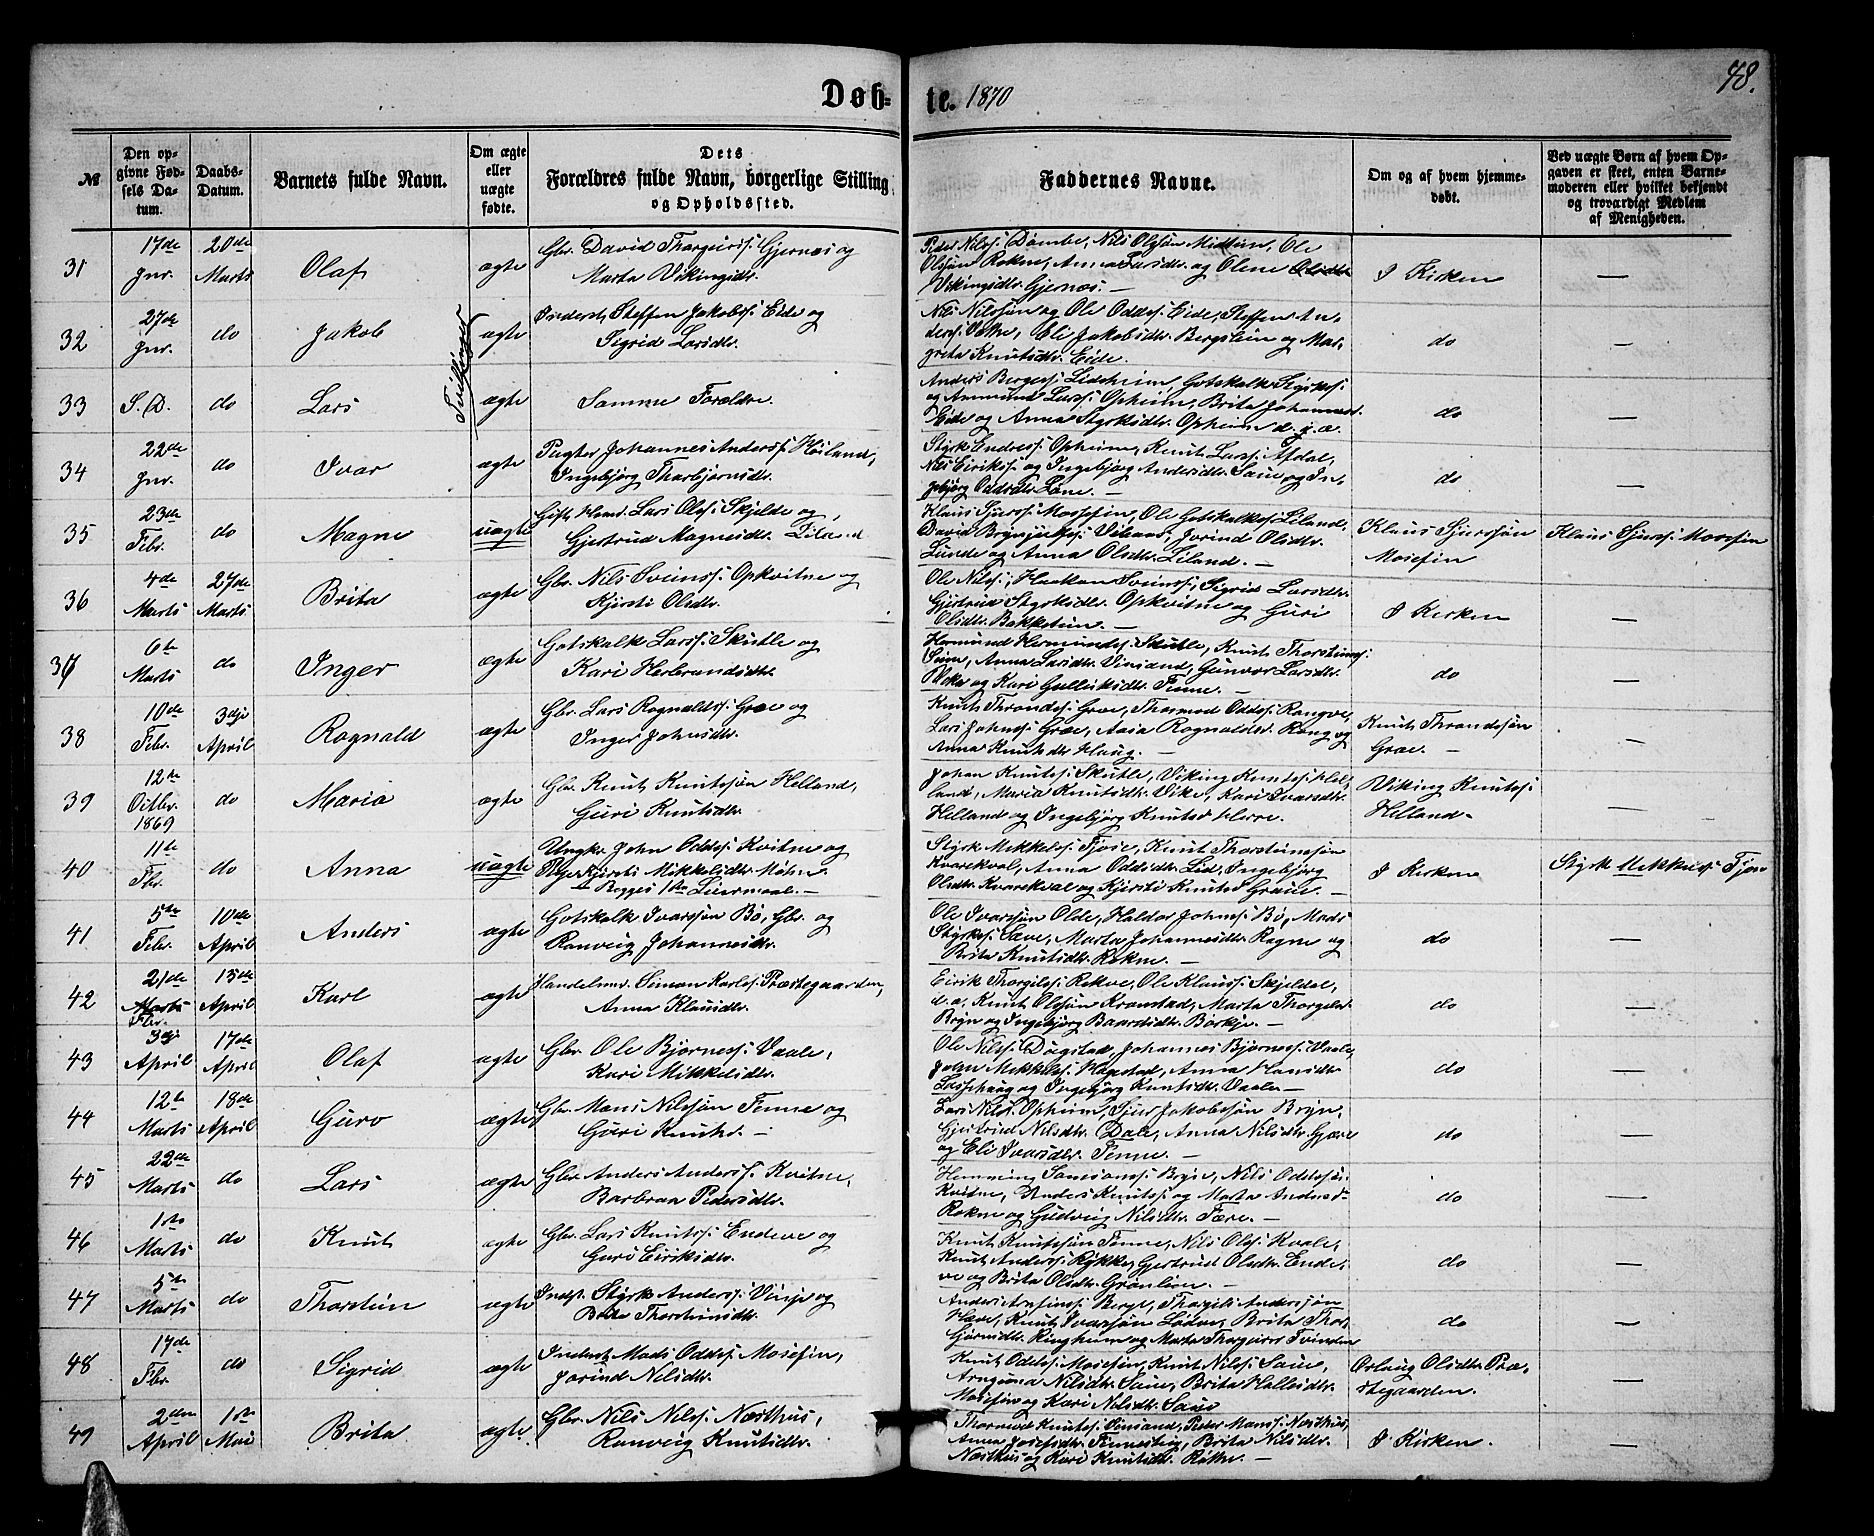 Døb-
te. 1870
48.
№
Den op-
givne Fød-
sels Da-
tum.
Daabs-
Datum.
Barnets fulde Navn.
Om ægte
eller
uægte
fødte.
Dets
Forældres fulde Navn, borgerlige Stilling
og Opholdssted.
Faddernes Navne.
Om og af hvem hjemme-
døbt.
Ved uægte Børn af hvem Op-
gaven er skeet, enten Barne-
moderen eller hvilket bekjendt
og troværdigt Medlem
af Menigheden.
31
17de
Jnr.
20de
Marts
Olaf
ægte
Gbr. David Thorgeirss: Gjernæs og
Marta Vikingsdtr.
Peder Nilss: Dømbe, Nils Olssøn Midttun, Ole
Olssøn Rokne, Anna Larsdtr. og Olene
Vikingsdtr. Gjernæs. —
I Kirken
—
32
27de
Jnr.
do
Jakob
Tvillinger
ægte
Inderst, Steffen Jakobss: Eide og
Sigrid Larsdtr.
Nils Nilssøn og Ole Oddss: Eide, Steffen An-
derss: Væthe, Eli Jakobsdtr. Bergslein og Mar-
greta Knutsdtr. Eide.
do
—
33
S. D.
do
Lars
ægte
Samme Forældre.
Anders Bergess: Lidsheim, Gotskalk Styrkss:
og Ammund Larss: Opheim, Brita Johannesd.
Eide og Anna Styrksdtr. Opheim d. y. æ.
do
—
34
22de
Jnr.
do
Ivar
ægte
Pagter Johannes Anderss: Høiland,
Ingebjørg Thorbjørnsdtr.
Styrk Endress: Opheim, Knut Larss: Afdal,
Nils Eirikss: og Ingebjørg Andersdtr. Saue og In-
gebjørg Oddsdtr. Lone. —
do
—
35
23de
Febr.
do
Magne
uægte
Gift Mand Lars Olss: Skjelde og
Gjertrud Magnesdtr. Liland
Klaus Sjurss: Mossefin, Ole Gotskalkss: Liland,
David Brynjulfss:
Lunde og Anna Olsdtr. Liland. —
Klaus Sjurssøn
Mosefin
Klaus Sjurss: Mossefin
36
4de
Marts
27de
Marts
Brita
ægte
Gbr. Nils Sveinss: Opkvitne og
Kjersti Olsdtr.
Ole Nilss:, Haakon Sveinss:, Sigrid Larsdtr.
Gjertrud Styrksdtr. Opkvitne og Guri
Olsdtr. Bakketun. —
I Kirken
—
37
6te
Marts
do
Inger
ægte
Gotskalk Larss: Skutle og
Kari Herbrandsdtr.
Hermund Hermundss: Skutle, Knut Thorsteinss:
Seim, Anna Larsdtr. Vinsand, Gunvor Larsdtr.
og Kari Gulleiksdtr. Finne. —
do
—
38
10de
Febr.
3dje
April
Rognald
ægte
Gbr. Lars Rognaldss: Grøe og
Inger Johnsdtr.
Knut Throndss: Grøe, Thormod Oddss: Rongve,
Lars Johnss: Grøe, Aasa Rognaldsdr. Rong og
Anna Knutsdtr. Haug. —
Knut Throndssøn
Grøe. —
—
39
12te
Octbr.
1869
do
Maria
ægte
Gbr. Knut Knutssøn Helland,
Guri Knutsdtr.
Johan Knutss: Skutle, Viking Knutss: Hel-
land, Maria Knutsdtr. Vike, Kari Ivarsdtr.
Helland og Ingebjørg Knutsd. Herre.
Viking Knutss:
Helland.
—
40
11te
Fbr.
do
Anna
uægte
Ungkr. John Oddss: Kvitne og
Pige Kjersti Mikkelsdtr. Møhn
Begges 1ste Leiermaal. —
Styrk Mikkelss: Tjose, Knut Thorsteinssøn
Kvarekval, Anna Oddsdtr. Lid, Ingebjørg
Olsdtr. Kvarekval og Kjersti Knutsd. —
I Kirken
Styrk Mikkelss: Tjose
41
5te
Febr.
10de
April
Anders
ægte
Gotskalk Ivarssøn Bø, Gbr. og
Ranveig Johannesdtr.
Ole Ivarssøn Olde, Haldor Johnss: Bø, Mads
Styrkss: Saue, Marta Johannesdtr. Rogne og
Brita Knutsdtr. Rokne. —
do
—
42
21de
Marts
Fbr.
15de
April
Karl
ægte
Handelsmd. Simon Karlss: Præstegaarden,
Anna Klausdtr.
Eirik Thorgilss: Rekve, Ole Klauss: Skjeldal,
d. æ., Knut Olssøn Kronstad, Marta Thorgilsd.
Bryn og Ingebjørg Baardsdtr. Børkje. —
do
—
43
3dje
April
17de
April
Olaf
ægte
Gbr. Ole Bjørness: Vaale,
Kari Mikkelsdtr.
Ole Nilss: Dagstad, Johannes Bjørness: Vaale,
John Mikkelss: Hagestad, Anna Hansdtr.
og Ingebjørg Knutsdtr. Vaale —
do
—
44
12te
Marts
18de
April
Guro
ægte
Gbr. Mons Nilssøn Finne og
Guri Knutsd. —
Lars Nilss. Opheim, Sjur Jakobssøn Bryn,
Gjertrud Nilsdtr. Dale, Anna Nilsdtr. Gjære
og Eli Ivarsdtr. Finne. —
do
—
45
22de
Marts
do
Lars
ægte
Gbr. Anders Anderss: Kvitne,
Barbraa Pedersdtr.
Hemming Samsonss: Bryn, Nils Oddssøn
Kvitne, Anders Knutss: og Marta Andersd.
Rokne og Gudveig Nilsdtr. Fære. —
do
—
46
1ste
Marts
do
Knut
ægte
Gbr. Lars Knutss: Endeve og
Guri Eiriksdtr.
Knut Knutssøn Finne, Nils Olss: Kvale,
Knut Anderss: Rykke, Gjertrud Olsdtr. Ende-
ve og Brita Olsdtr. Grønlien. —
do
—
47
5te
Marts
do
Thorstein
ægte
Indst. Styrk Anderss: Vinje og
Brita Thorsteinsdtr.
Anders Arnfinss: Berge, Thorgils Anderssøn
Hæve, Knut Ivarssøn Løden, Brita Thor-
bjørnsdtr. Ringheim og Marta Thorgeirsd. Tvinden
do
—
48
17de
Fbr.
do
Sigrid
ægte
Inderst, Mads Oddss: Mosefin,
Jorind Nilsdtr.
Knut Oddss: Mosefin, Knut Nilss: Saue,
Arnguna Nilsdtr. Saue, Brita Hallesdtr.
Mosefin og Kari Nilsdtr. Saue
Orlaug Olsdtr. Præ-
stegaarden.
—
49
2den
April
1ste
Mai
Brita
ægte
Gbr. Nils Nilss: Næsthus,
Ranveig Knutsdtr.
Thormod Knutss: Vinsand, Peder Monss: Næsthus,
Anna Josefsdtr. Finnesteig, Brita Nilsdtr.
Næsthus og Kari Knutsdtr. Røthe. —
I Kirken.
—